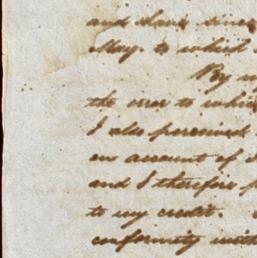 and
May. to which
By
the error to which
I also perceived
on account of
and I therefore
to my credit.
conformity with